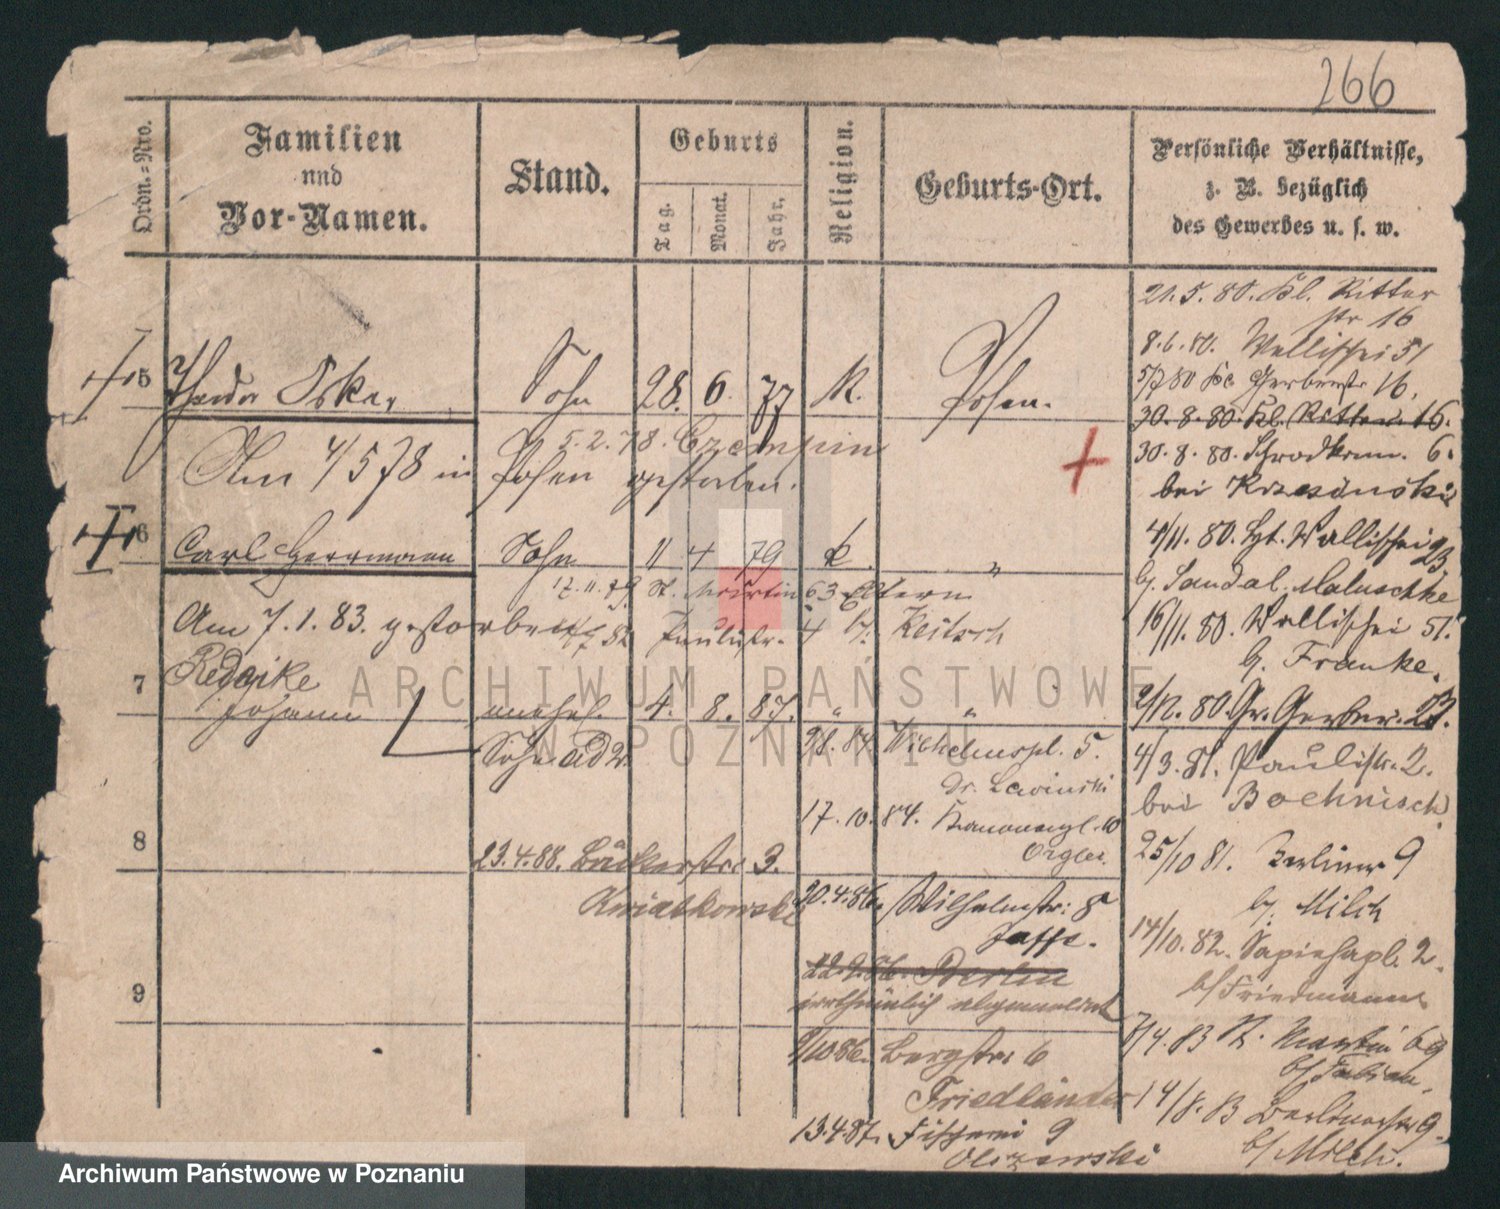 266
Ordn.=Nro.
Familien
und
Vor-Namen.
Stand.
Geburts
Tag.
Monat.
Jahr.
Religion.
Geburts-Ort.
Persönliche Verhältnisse,
z. B. bezüglich
des Gewerbes u. s. w.
21.5.80. Kl. Ritter
str 16
8.6.80. Wallischei 51
5/7 80 Kl. Gerberstr 16.
5 Theodor Oskar Sohn 28. 6. 77 K. Posen.
30.8.80. Kl. Ritter 16.
5.2.78. Czempin
30.8.80. Schrodkerm. 6.
Am 4/5 78 in Posen gestorben.
bei Krzesinski
6 Carl Herrmann Sohn 11 4 79 k. "
4/11. 80. Wallischei 93
17.11.79. St. Martin 63 Eltern
b. Sandal. Maluschke
Am 7.1.83. gestorben
Paulistr. 4 b.
16/11. 80. Wallischei 51.
b. Franke.
7 Redzike
Johann unehel. 4. 8. 87. " "
2/12. 80. Gr. Gerber. 23.
Sohn ad 2.
Wilhelmspl. 5.
4/3. 81. Paulistr. 2.
Dr. Lewinski
bei Boehnisch
17.10.84. Kanonenpl. 10
Orgler.
8
25/10 81. Berliner 9
23.4.88. Bäckerstr. 3.
b. Milch
Kwiatkowski
20.4.86. Wilhelmstr. 8
Jaffe.
14/10. 82. Sapiehapl. 2.
Berlin
b/ Friedmann
irrthümlich abgemeldet
9
7/4. 83 St. Martin 69
9/10 86. Bergstr. 6
b/ Fabian.
Friedländer
14/8. 83 Berlinerstr 9.
13.4.87. Fischerei 9
b/ Milch.
Olszewski
ARCHIWUM PAŃSTWOWE
W POZNANIU
Archiwum Państwowe w Poznaniu